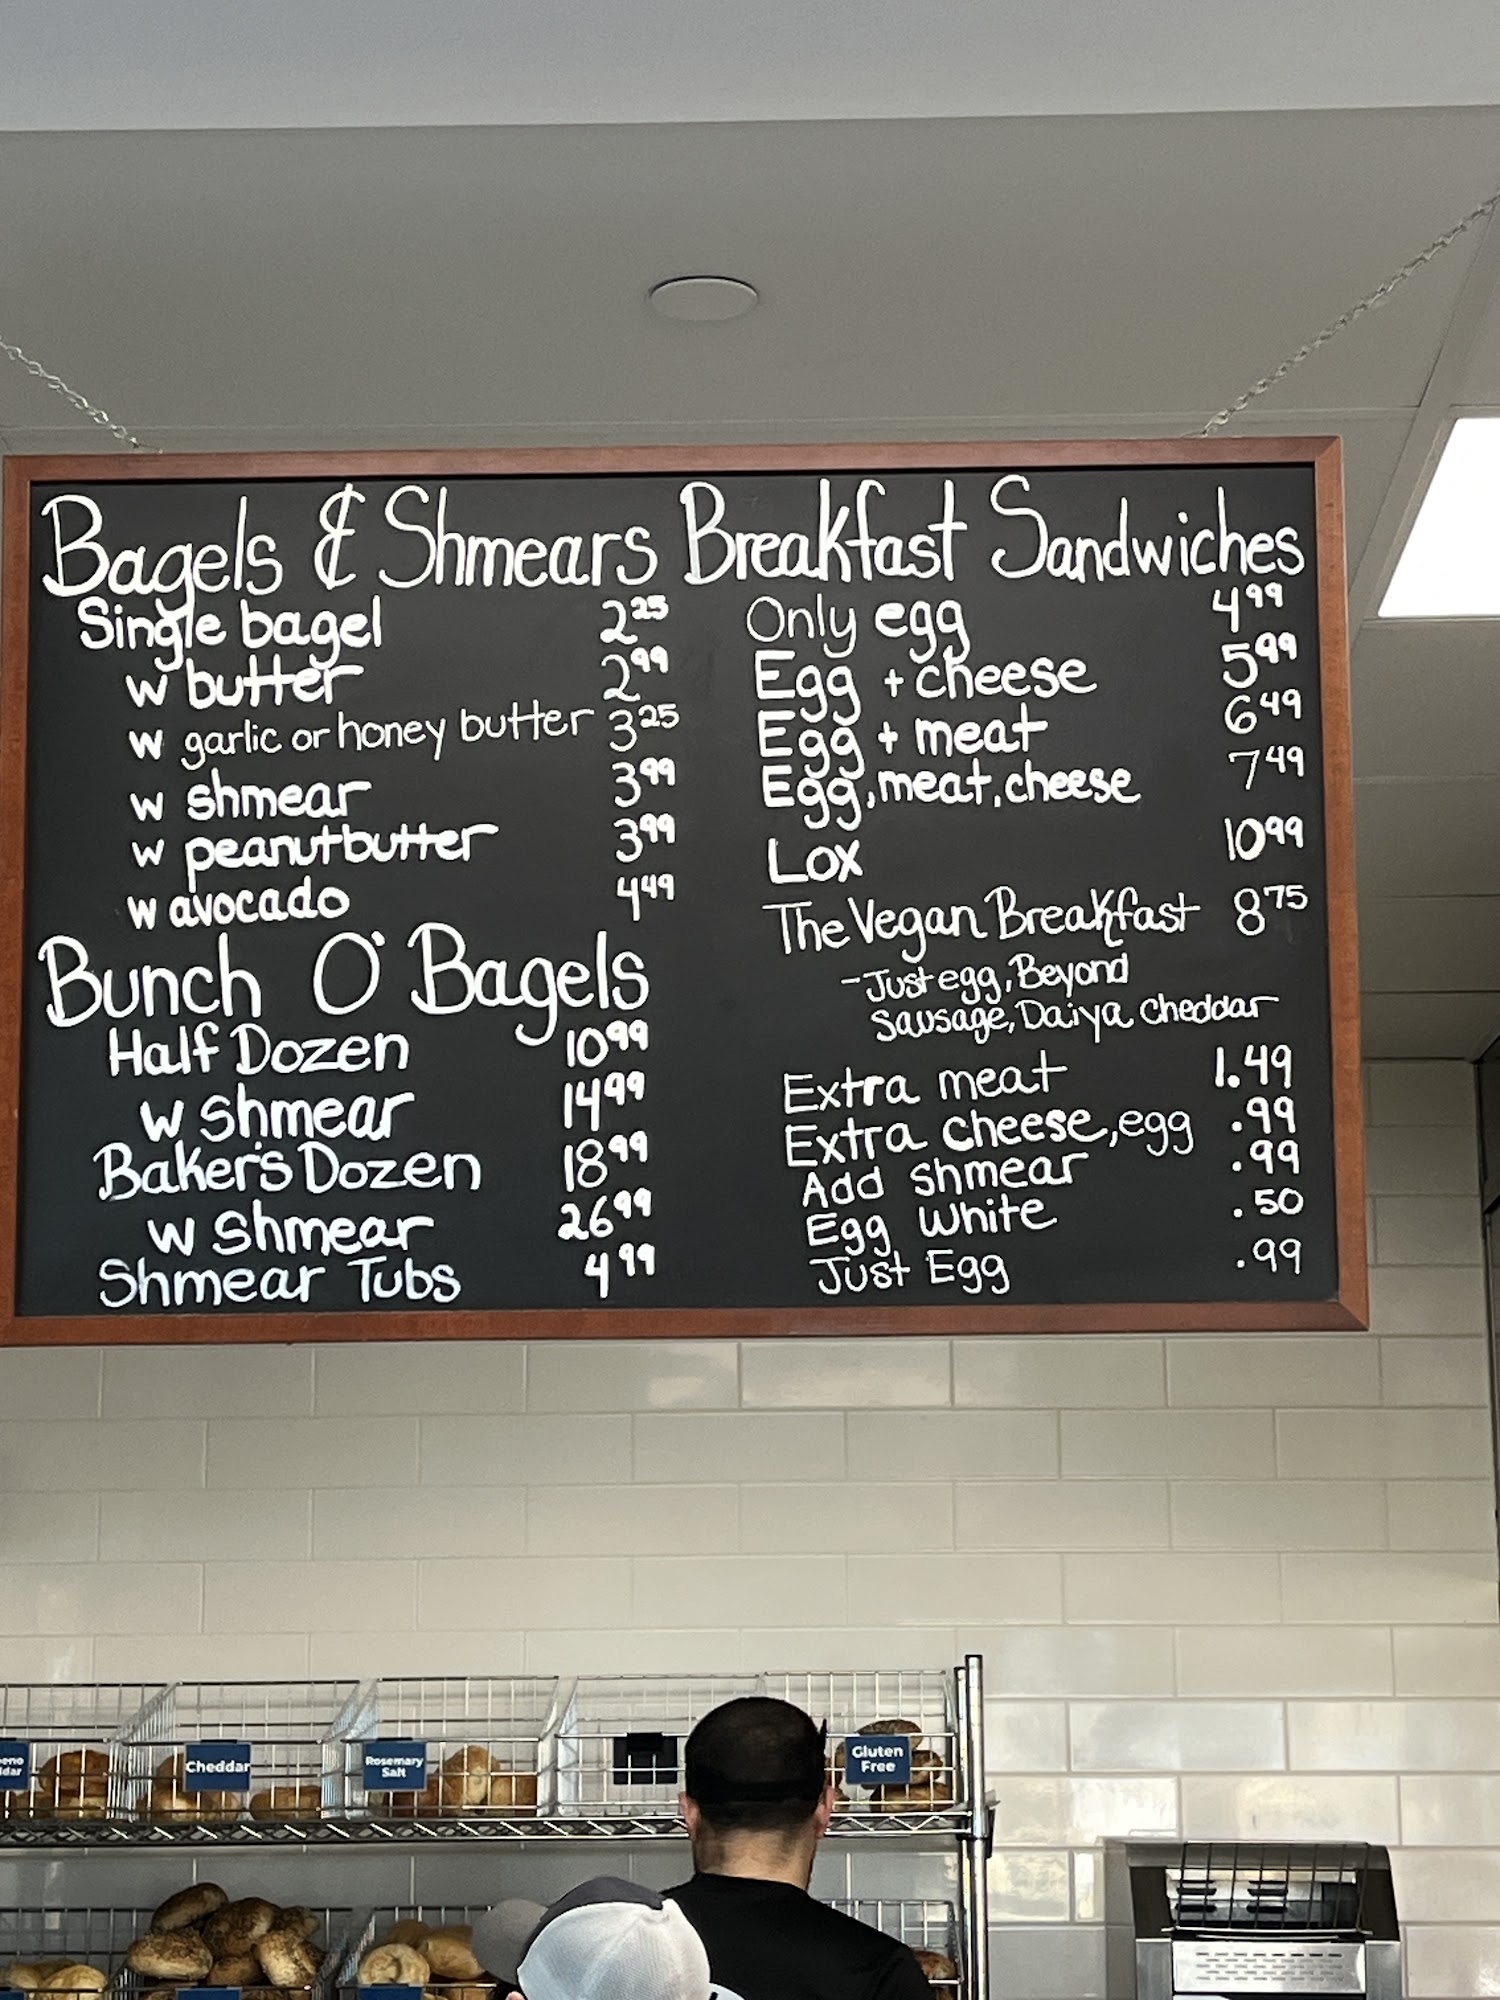 Bagels & Shmears
Single bagel 2.25
w butter 2.99
w garlic or honey butter 3.25
w shmear 3.99
w peanutbutter 3.99
w avocado 4.49
Bunch O' Bagels
Half Dozen 10.99
w shmear 14.99
Baker's Dozen 18.99
w shmear 26.99
Shmear Tubs 4.99
Breakfast Sandwiches
Only egg 4.99
Egg + cheese 5.99
Egg + meat 6.49
Egg, meat, cheese 7.49
Lox 10.99
The Vegan Breakfast 8.75
- Just egg, Beyond
Sausage, Daiya cheddar
Extra meat 1.49
Extra cheese, egg .99
Add shmear .99
Egg white .50
Just Egg .99
Cheddar
Rosemary
Salt
Gluten
Free